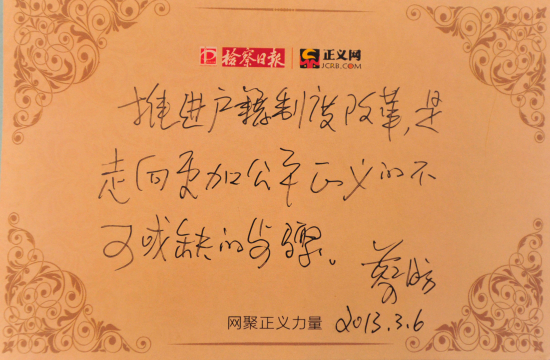 检察日报 正义网
JCRB.COM
推进户籍制度改革,是
走向更加公平正义的不
可或缺的步骤。
蔡昉
网聚正义力量 2013.3.6